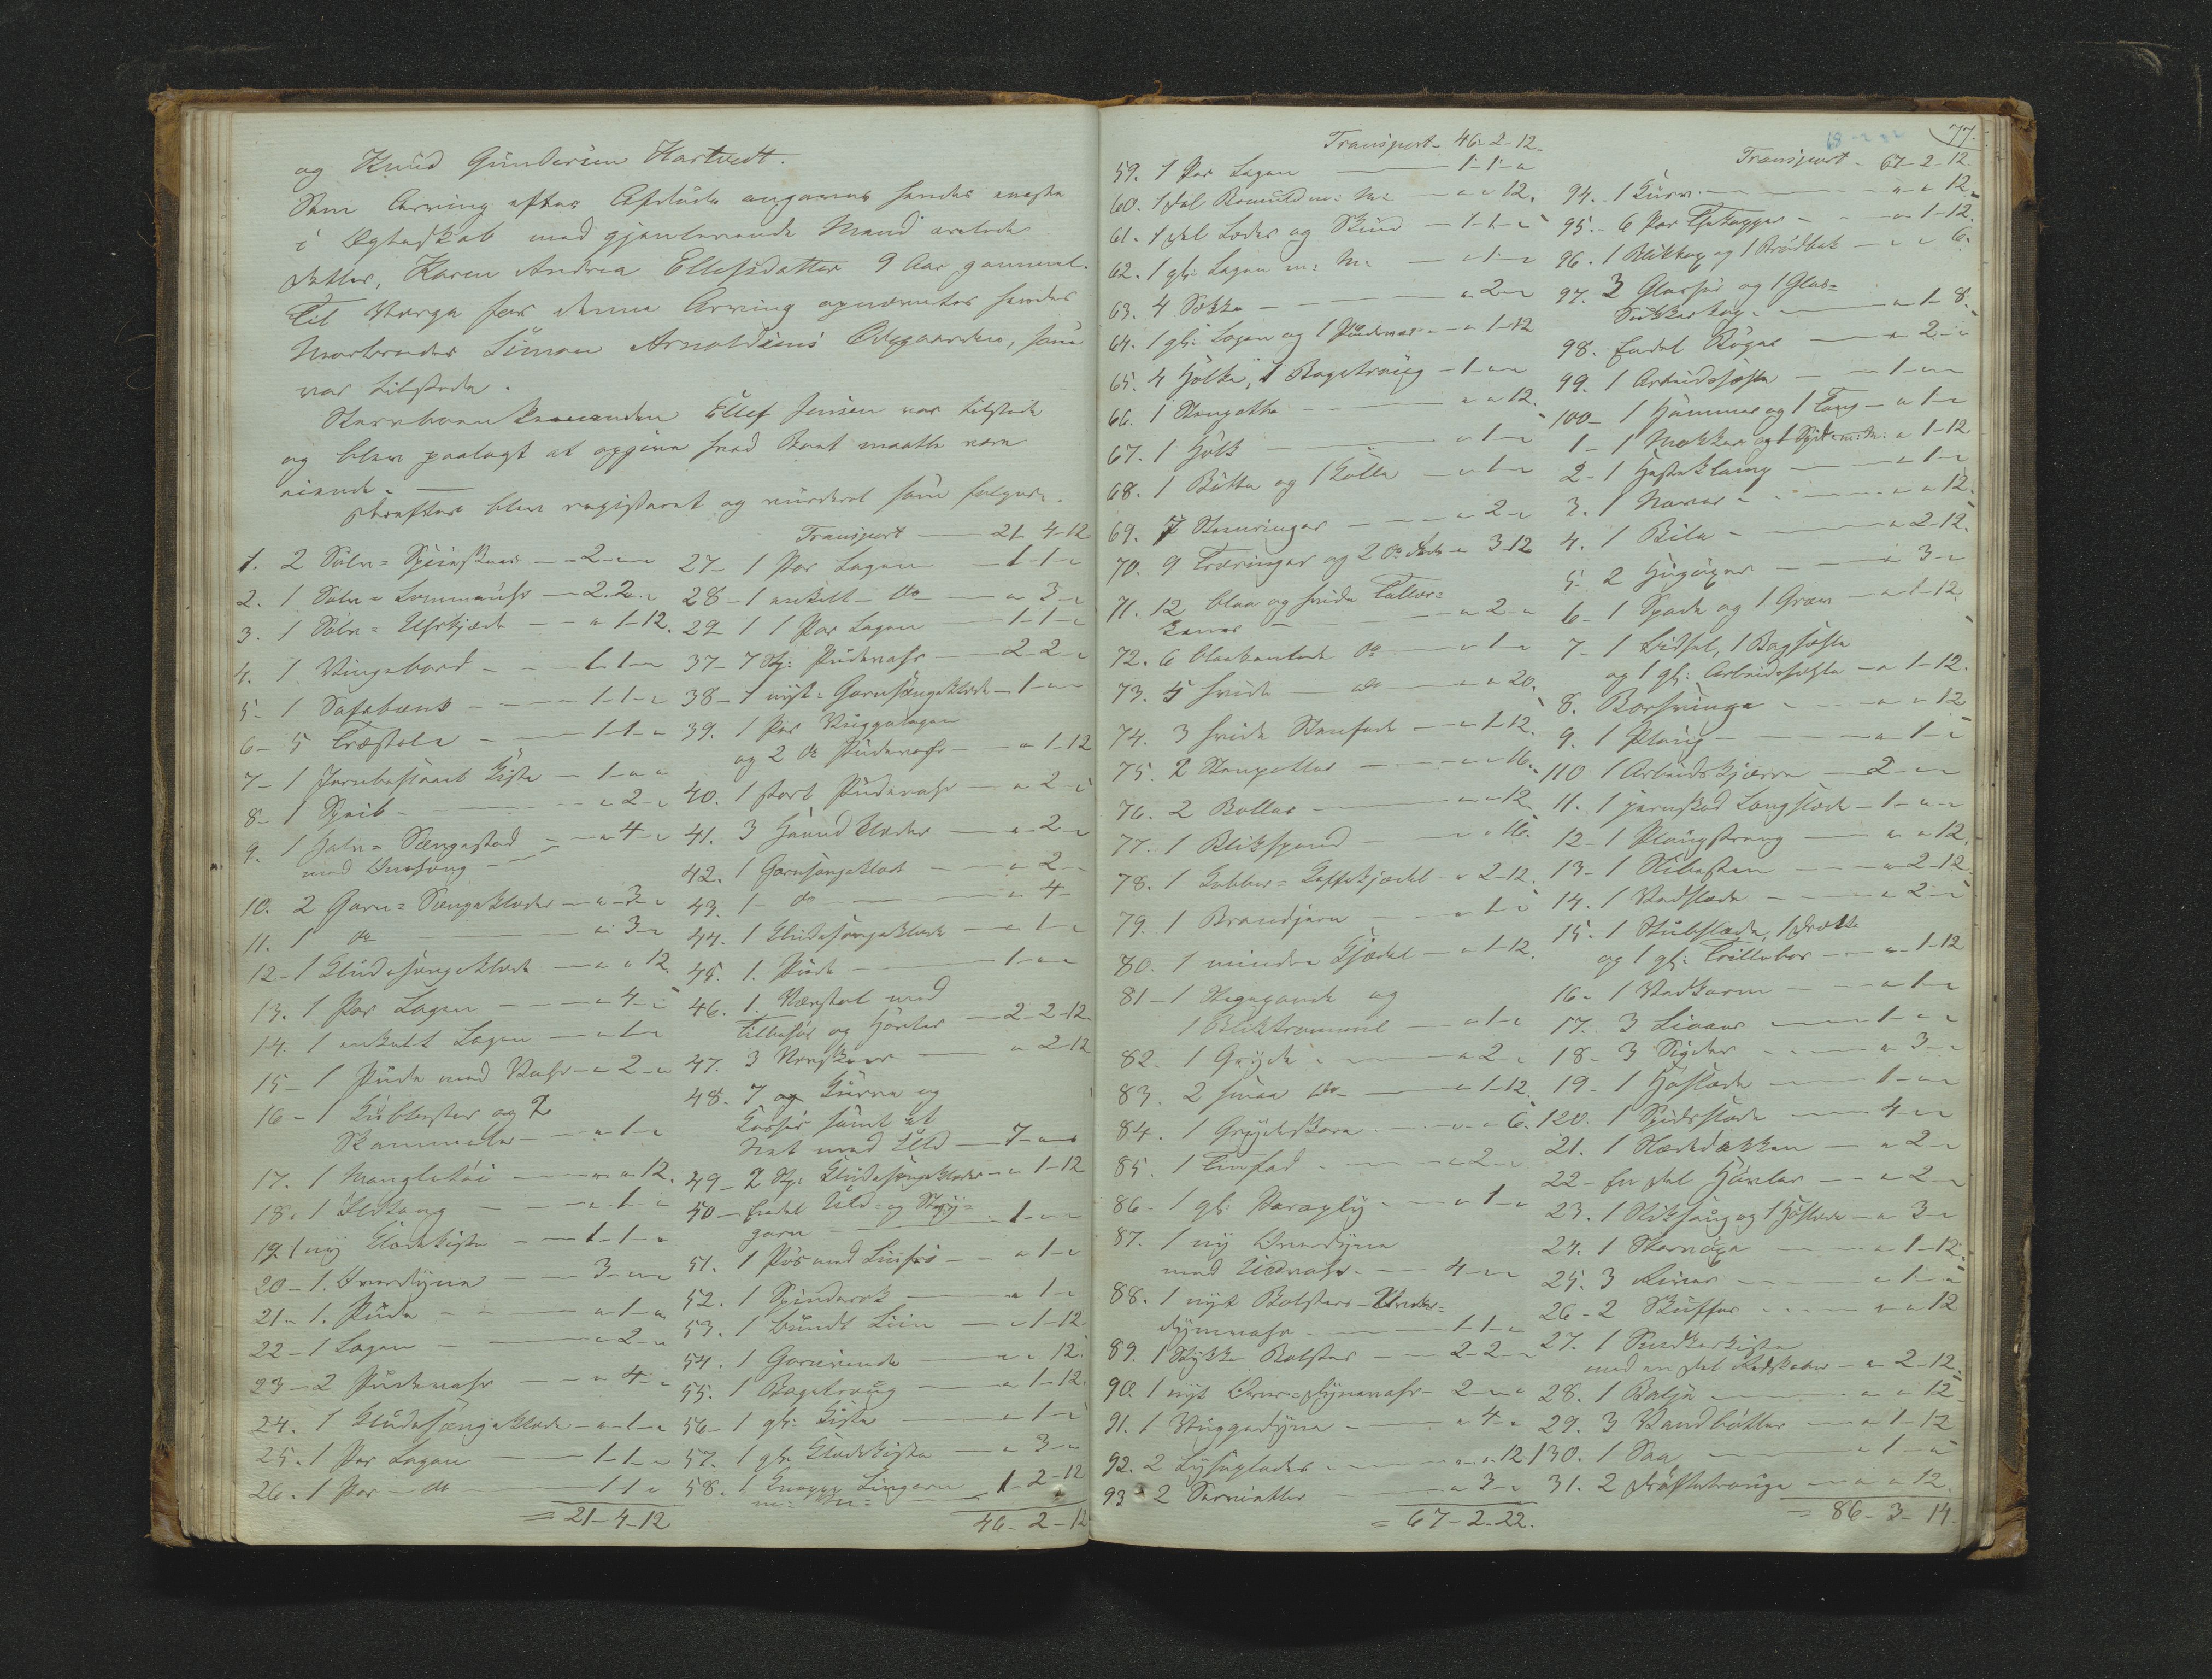 og Knud Gundersen Hartvedt.
Som Arving efter Afdøde angaves hendes eneste
i Ægteskab med gjenlevende Mand avlede
Datter, Karen Andrea Ellefsdatter 9 Aar gammel.
Til Værge for denne Arving opnævntes hendes
Morbroder Simon Arnoldsens Odegaarden, som
var tilstede.
Stervboenkemanden Ellef Jensen var tilstede
og blev paalagt at opgive hvad Boet maatte være
eiende.
Derefter blev registeret og vurderet som følger.
1. 2 Sølv-Spiseskeer — 2 - " - "
2. 1 Sølv-Lommeuhr — 2. 2. "
3. 1 Sølv-Uhrkjæde — " 1-12.
4. 1 Vingebord — 1-1-"
5- 1 Sofabænk — 1-1-"
6- 5 Træstole — 1-1-"
7- 1 Jernbeslaaet Kiste — 1-"-"
8- 1 Speil — " 2-"
9. 1 Halv-Sængested — " 4-"
med Omhæng
10. 2 Garn-Sængeklæder — " 3-"
11. 1 do — " 3-"
12- 1 Kludesængeklæde — " " 12.
13. 1 Par Lagen — " 4-"
14. 1 enkelt Lagen — " 1-"
15- 1 Pude med Vahr — " 2-"
16- 1 Kubbestol og 2
Skammeler — " 1-"
17. 1 Mangletøi — " " 12.
18. 1 Ildtang — " 1-"
19. 1 ny Klædekiste — 1-1-"
20- 1. Overdyne — 3-"-"
21- 1. Pude — " 1-"
22- 1 Lagen — " 2-"
23- 2 Pudevahr — " 4-"
24. 1 Kludesængeklæde — " 1-"
25. 1 Par Lagen — 1-1-"
26. 1 Par do — 1 1 "
= 21-4-12
Transport — 21 4-12
27- 1 Par Lagen — 1-1-"
28- 1 enkelt do — " 3-"
29- 1 Par Lagen — 1-1-"
37- 7 St: Pudevahr — 2-2-"
38- 1 nyt Garnsængeklæde — 1-"-"
39. 1 Par Vuggelagen
og 2 do Pudevahr — " 1-12
40. 1 stort Pudevahr — " 2-"
41. 3 Haandklæder — " 2-"
42. 1 Garnsængeklæde — " 2-
43. 1- do — " 4-
44. 1 Kludesængeklæde — " 1-"
45. 1. Pude — 1-"-"
46. 1. Vævstol med
Tilbehør og Hovler — 2-2-12.
47. 3 Vævskeer — " 2-12
48. 7 Kurve og
samt et
Net med Uld — 7-"-"
49- 2 St: Kludesængeklæder — " 1-12
50- Endel Uld- og Stry-
garn — 1-"-"
51. 1 Pose med Linfrø — " 1-"
52. 1 Spinderok — " 1-"
53. 1 Bundt Liin — " 1-12
54. 1 Garnvinde — " " 12.
55. 1 Bagetroug — " 1-12.
56- 1 gl: Kiste — " 1-"
57. 1 gl: Klædekiste — " 3-"
58. 1 Lingarn — 1-2-12
m: M:
46-2-12
Transport- 46-2-12.
59. 1 Par Lagen — 1-1-"
60. 1 Del Bomuld m: M: — " " 12.
61. 1 Del Læder og Skind — 1-1-"
62. 1 gl: Lagen m: M: — " 1-"
63. 4 Sække — " 2-"
64. 1 gl: Lagen og 1 Pudevar — " 1-12
65. 4 Holke, 1 Bagetroug — 1-"-"
66. 1 Stenpotte — " " 12.
67. 1 Holk — " 1-"
68. 1 Bøtte og 1 Kolle — " 1-"
69. 7 Stenringer — " 2-"
70. 9 Træringer og 2 do — " 3-12
71. 12 blaa og hvide Taller-
kener — " 2-"
72. 6 blaakantede do — " 1-"
73. 5 hvide do — " " 20.
74. 3 hvide Stenfade — " 1-12.
75. 2 Stenpotter — " " 16.
76. 2 Boller — " " 12.
77. 1 Blikspand — " " 16.
78. 1 Kobber-Kaffekjedel — " 2-12.
79. 1 Brændjern — " 1-"
80. 1 mindre Kjædel — " 1-12.
81- 1 Stegepande og
1 Bliktrommel — " 1-"
82. 1 Gryde — " 2-"
83. 2 smaa do — " 1-12.
84. 1 Grydeskare — " " 6.
85. 1 Tinfad — " 2-"
86- 1 gl: Paraply — " 1-"
87. 1 ny Overdyne
med Uldvahr — 4-"-"
88. 1 nyt Bolsters-Under-
dynevahr — 1-1-"
89. 1 Stykke Bolster — 2-2-"
90. 1 nyt Over-Dynevahr — 2-"-"
91. 1 Vuggedyne — " 4-"
92. 2 Lyseplader — " " 12
93- 2 Servietter — " 3-"
= 67-2-22.
77.
Transport — 67-2-12.
94. 1 Kurv — " " 12.
95. 6 Par Thekopper — " 1-12.
96. 1 Blikkop og 1 Brødbak — " " 6.
97. 2 Glasser og 1 Glas-
Sukkerkop — " 1-8.
98. Endel Bøger — " 2-"
99. 1 Arbeidssæle — 1-"-"
100- 1 Hammer og 1 Tang — " 1-"
1- 1 Nøkker og m: M: " 1-12
2- 1 Hesteklamp — " 1-"
3. 1 Naver — " " 12.
4. 1 Bile — " 2-12.
5. 2 Hugøxer — " 3-"
6- 1 Spade og 1 Græv — " 1-12
7- 1 Bidsel, 1 Bagsæle
og 1 gl: Arbeidssæle — " 1-12.
8. Borsvinge — " " 12
9. 1 Ploug — " 1-"
110 1 Arbeidskjærre — 2-"-"
11. 1 jernskod Langslæde — 1-"-"
12- 1 Plougstreng — " " 12.
13- 1 Slibesten — " 2-12
14. 1 Vedslæde — " 2-"
15. 1 Stubslæde, 1 Drætte
og 1 gl: Trillebør — " 1-12
16- 1 Vedkarm — " 1-"
17. 3 Lieaer — 1-"-"
18- 3 Sigder — " 3-"
19- 1 Høslæde — 1-"-"
120. 1 Spidsslæde — 4-"-"
21. 1 Slædedækken — " 2-"
22- En Del Høvler — " 2-"
23. 1 Stiksaug og 1 — " 3-"
24. 1 — " 1-12.
25. 3 River — " 1-"
26- 2 Skuffer — " " 12
27. 1 Snedkerkiste
med en Del Redskaber — " 2-12.
28. 1 Balje — " " 12
29. 3 Vandbøtter — " 1-12
130. 1 Saa — " 1-"
31. 2 Drøftetrouge — " " 12.
= 86-3-14.